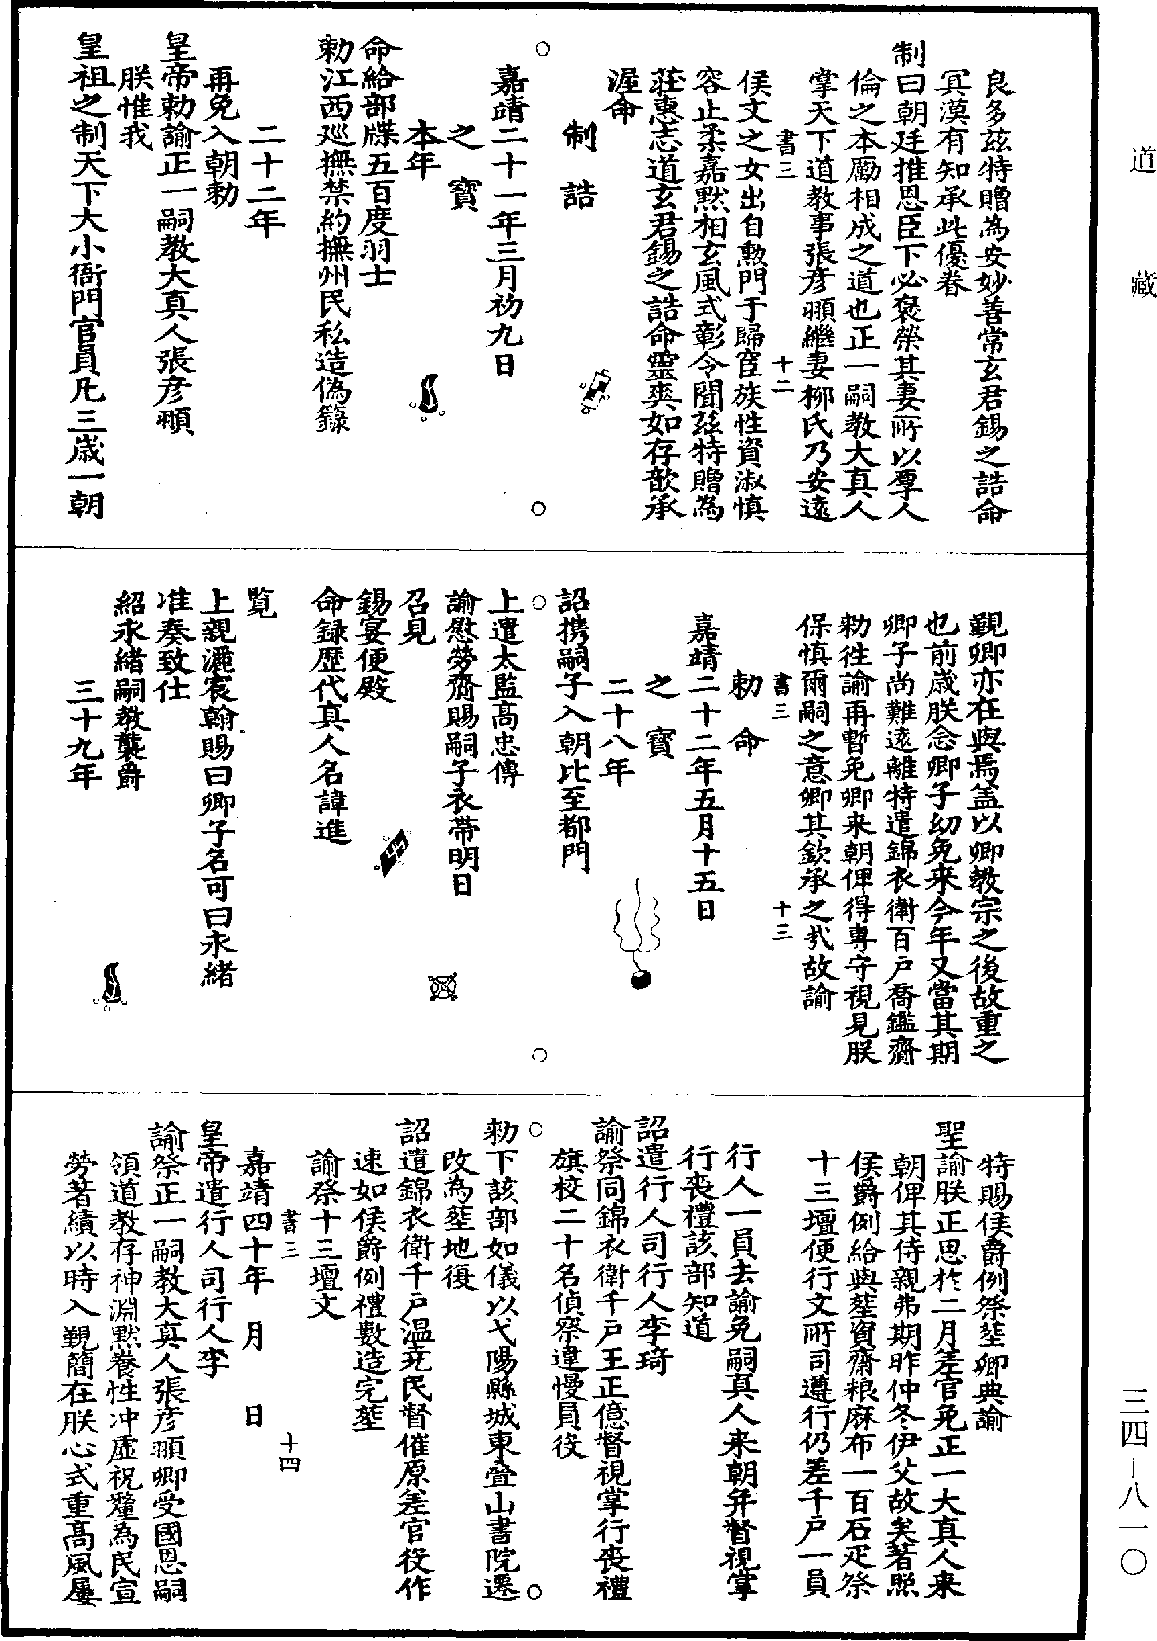 道藏
良多玆特贈為安妙善常玄君錫之誥命
冥漠有知承此優眷
制曰朝廷推恩臣下必褒榮其妻所以厚人
倫之本勵相成之道也正一嗣教大真人
掌天下道教事張彥頨繼妻柳氏乃安遠
書三 十二
侯文之女出自勲門于歸宦族性資淑慎
容止柔嘉黙相玄風式彰令聞玆特贈為
莊惠志道玄君錫之誥命靈爽如存歆承
渥命
制誥
嘉靖二十一年三月初九日
之寶
本年
命給部牒五百度羽士
勑江西巡撫禁約撫州民私造偽籙
二十二年
再免入朝勑
皇帝勑諭正一嗣教大真人張彥頨
朕惟我
皇祖之制天下大小衙門官員凡三歲一朝
覲卿亦在與焉盖以卿教宗之後故重之
也前歲朕念卿子幼免来今年又當其期
卿子尚難遠離特遣錦衣衛百戶喬鑑齎
勑徃諭再暫免卿来朝俾得專守視見朕
保慎爾嗣之意卿其欽承之㢤故諭
書三 十三
勅命
嘉靖二十二年五月十五日
之寶
二十八年
詔携嗣子入朝比至都門
上遣太監高忠傳
諭慰勞齎賜嗣子衣帶明日
召見
錫宴便殿
命録歷代真人名諱進
覧
上親灑宸翰賜曰卿子名可曰永緒
准奏致仕
紹永緒嗣教襲爵
三十九年
特賜侯爵例祭塟卹典諭
聖諭朕正思扵二月差官免正一大真人来
朝俾其侍親弗期昨仲冬伊父故矣著照
侯爵例給與塟資齋粮麻布一百石疋祭
十三壇便行文所司遵行仍差千戶一員
行人一員去諭免嗣真人来朝并督視掌
行喪禮該部知道
詔遣行人司行人李琦
諭祭同錦衣衛千戶王正億督視掌行喪禮
旗校二十名偵察違慢員役
勑下該部如儀以弋陽縣城東疊山書院遷
改為塟地復
詔遣錦衣衛千戶温尭民督催原差官役作
速如侯爵例禮數造完塟
諭祭十三壇文
書三 十四
嘉靖四十年 月 日
皇帝遣行人司行人李
諭祭正一嗣教大真人張彥頨卿受國恩嗣
領道教存神淵黙養性冲虛祝釐為民宣
勞著績以時入覲簡在朕心式重高風屢
三四—八一〇